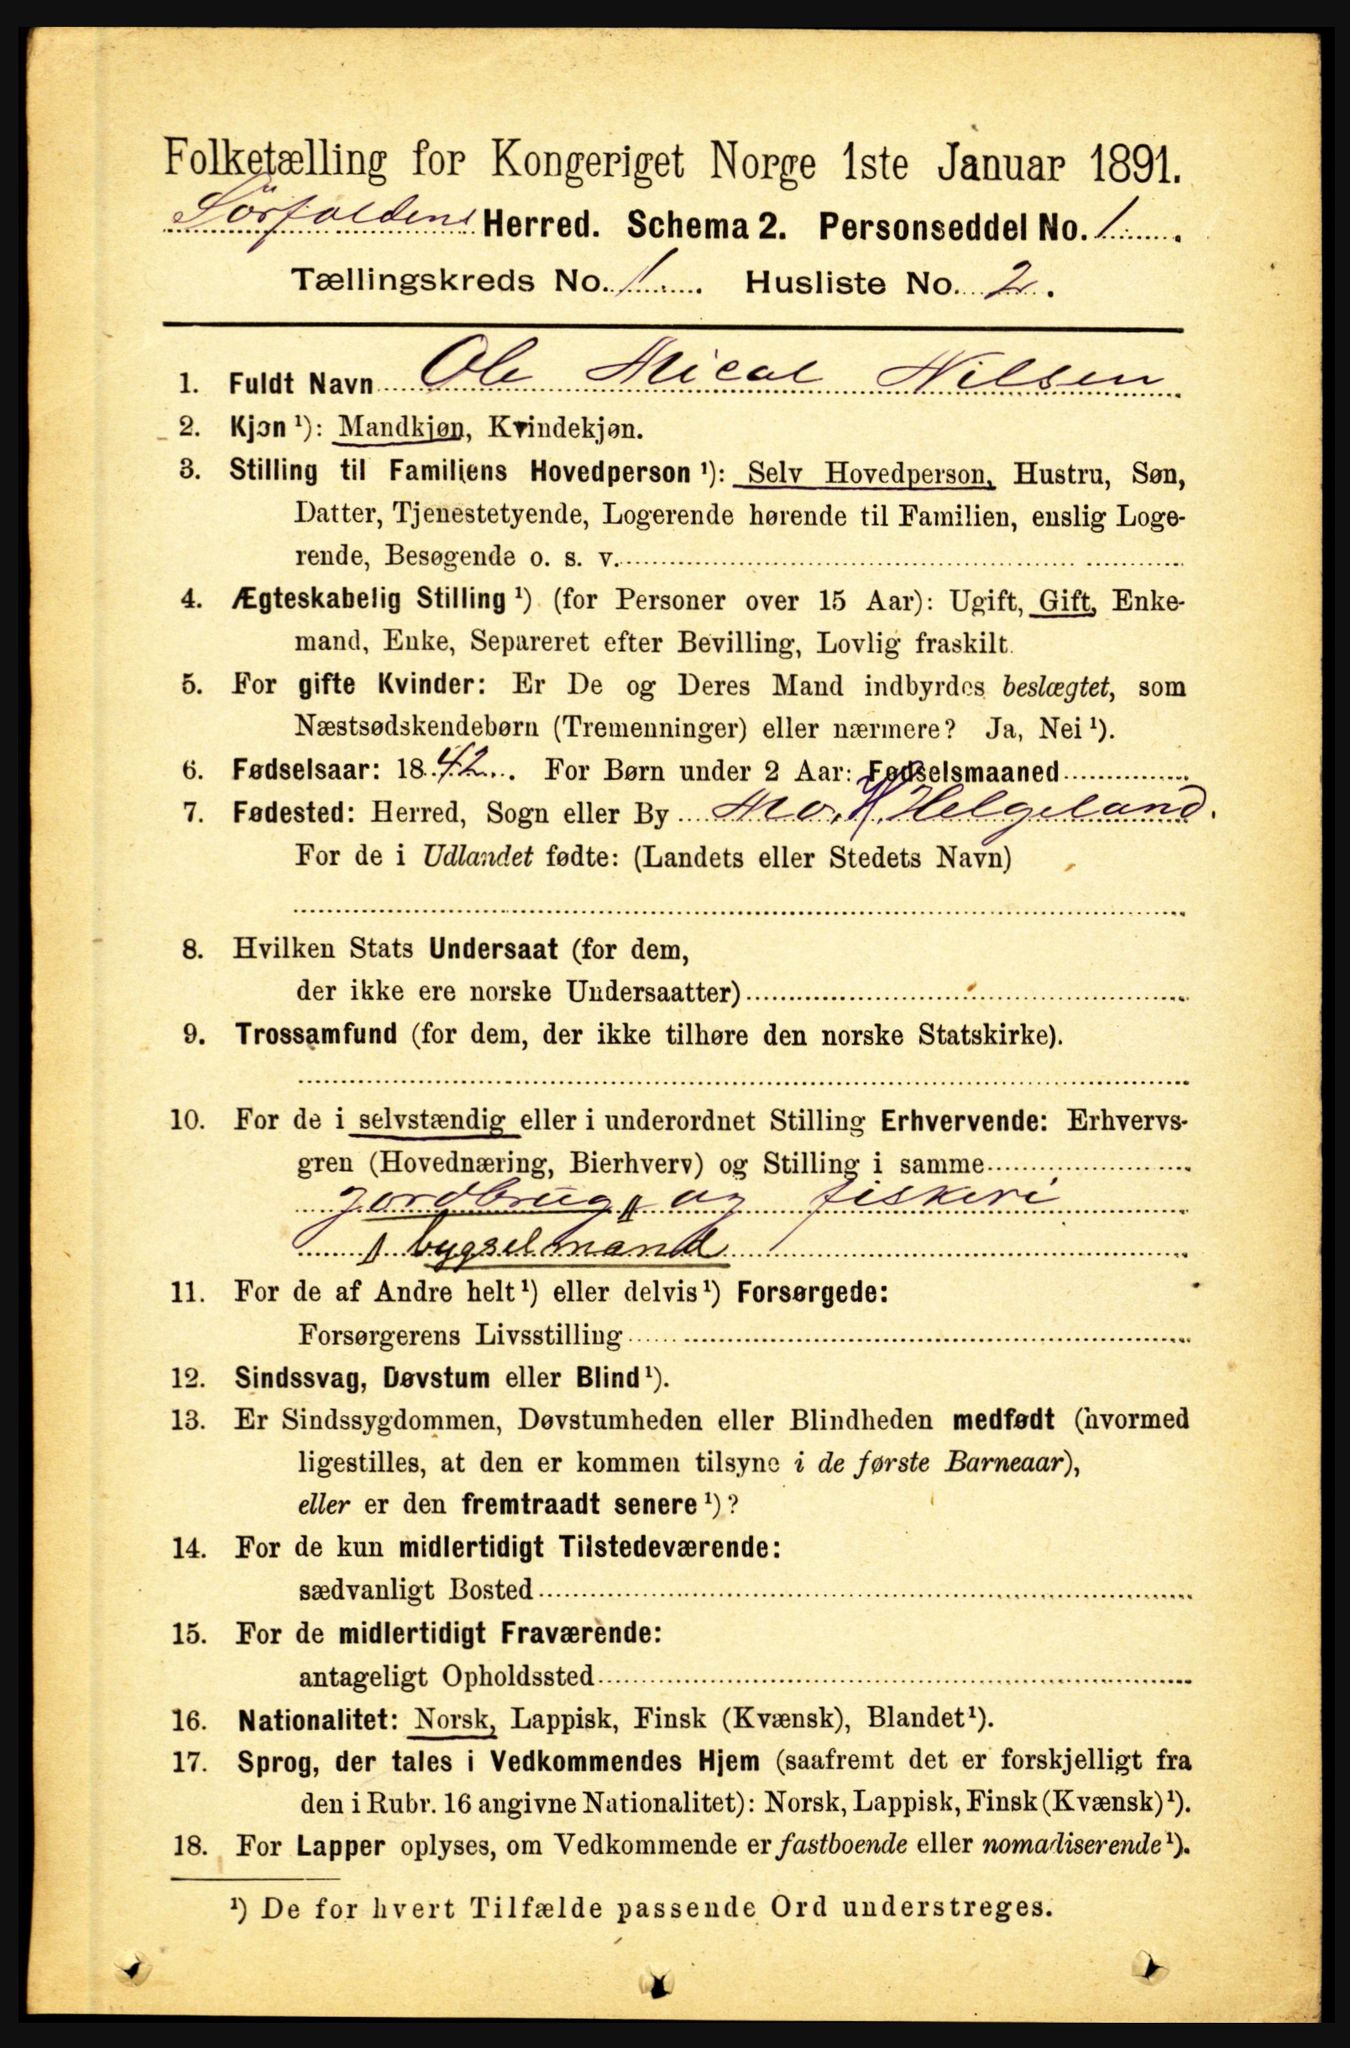 Folketælling for Kongeriget Norge 1ste Januar 1891.
Sørfoldens Herred. Schema 2. Personseddel No. 1.
Tællingskreds No. 1. Husliste No. 2.
1. Fuldt Navn Ole Mical Nilsen
2. Kjøn ¹): Mandkjøn, Kvindekjøn.
3. Stilling til Familiens Hovedperson ¹): Selv Hovedperson, Hustru, Søn,
Datter, Tjenestetyende, Logerende hørende til Familien, enslig Loge-
rende, Besøgende o. s. v.
4. Ægteskabelig Stilling ¹) (for Personer over 15 Aar): Ugift, Gift, Enke-
mand, Enke, Separeret efter Bevilling, Lovlig fraskilt.
5. For gifte Kvinder: Er De og Deres Mand indbyrdes beslægtet, som
Næstsødskendebørn (Tremenninger) eller nærmere? Ja, Nei ¹).
6. Fødselsaar: 1842. For Børn under 2 Aar: Fødselsmaaned
7. Fødested: Herred, Sogn eller By Mo, H Helgeland.
For de i Udlandet fødte: (Landets eller Stedets Navn)
8. Hvilken Stats Undersaat (for dem,
der ikke ere norske Undersaatter)
9. Trossamfund (for dem, der ikke tilhøre den norske Statskirke).
10. For de i selvstændig eller i underordnet Stilling Erhvervende: Erhvervs-
gren (Hovednæring, Bierhverv) og Stilling i samme
jordbrug og fiskeri
bygselmand
11. For de af Andre helt ¹) eller delvis ¹) Forsørgede:
Forsørgerens Livsstilling
12. Sindssvag, Døvstum eller Blind ¹).
13. Er Sindssygdommen, Døvstumheden eller Blindheden medfødt (hvormed
ligestilles, at den er kommen tilsyne i de første Barneaar),
eller er den fremtraadt senere ¹)?
14. For de kun midlertidigt Tilstedeværende:
sædvanligt Bosted
15. For de midlertidigt Fraværende:
antageligt Opholdssted
16. Nationalitet: Norsk, Lappisk, Finsk (Kvænsk), Blandet ¹).
17. Sprog, der tales i Vedkommendes Hjem (saafremt det er forskjelligt fra
den i Rubr. 16 angivne Nationalitet): Norsk, Lappisk, Finsk (Kvænsk) ¹).
18. For Lapper oplyses, om Vedkommende er fastboende eller nomadiserende ¹).
¹) De for hvert Tilfælde passende Ord understreges.